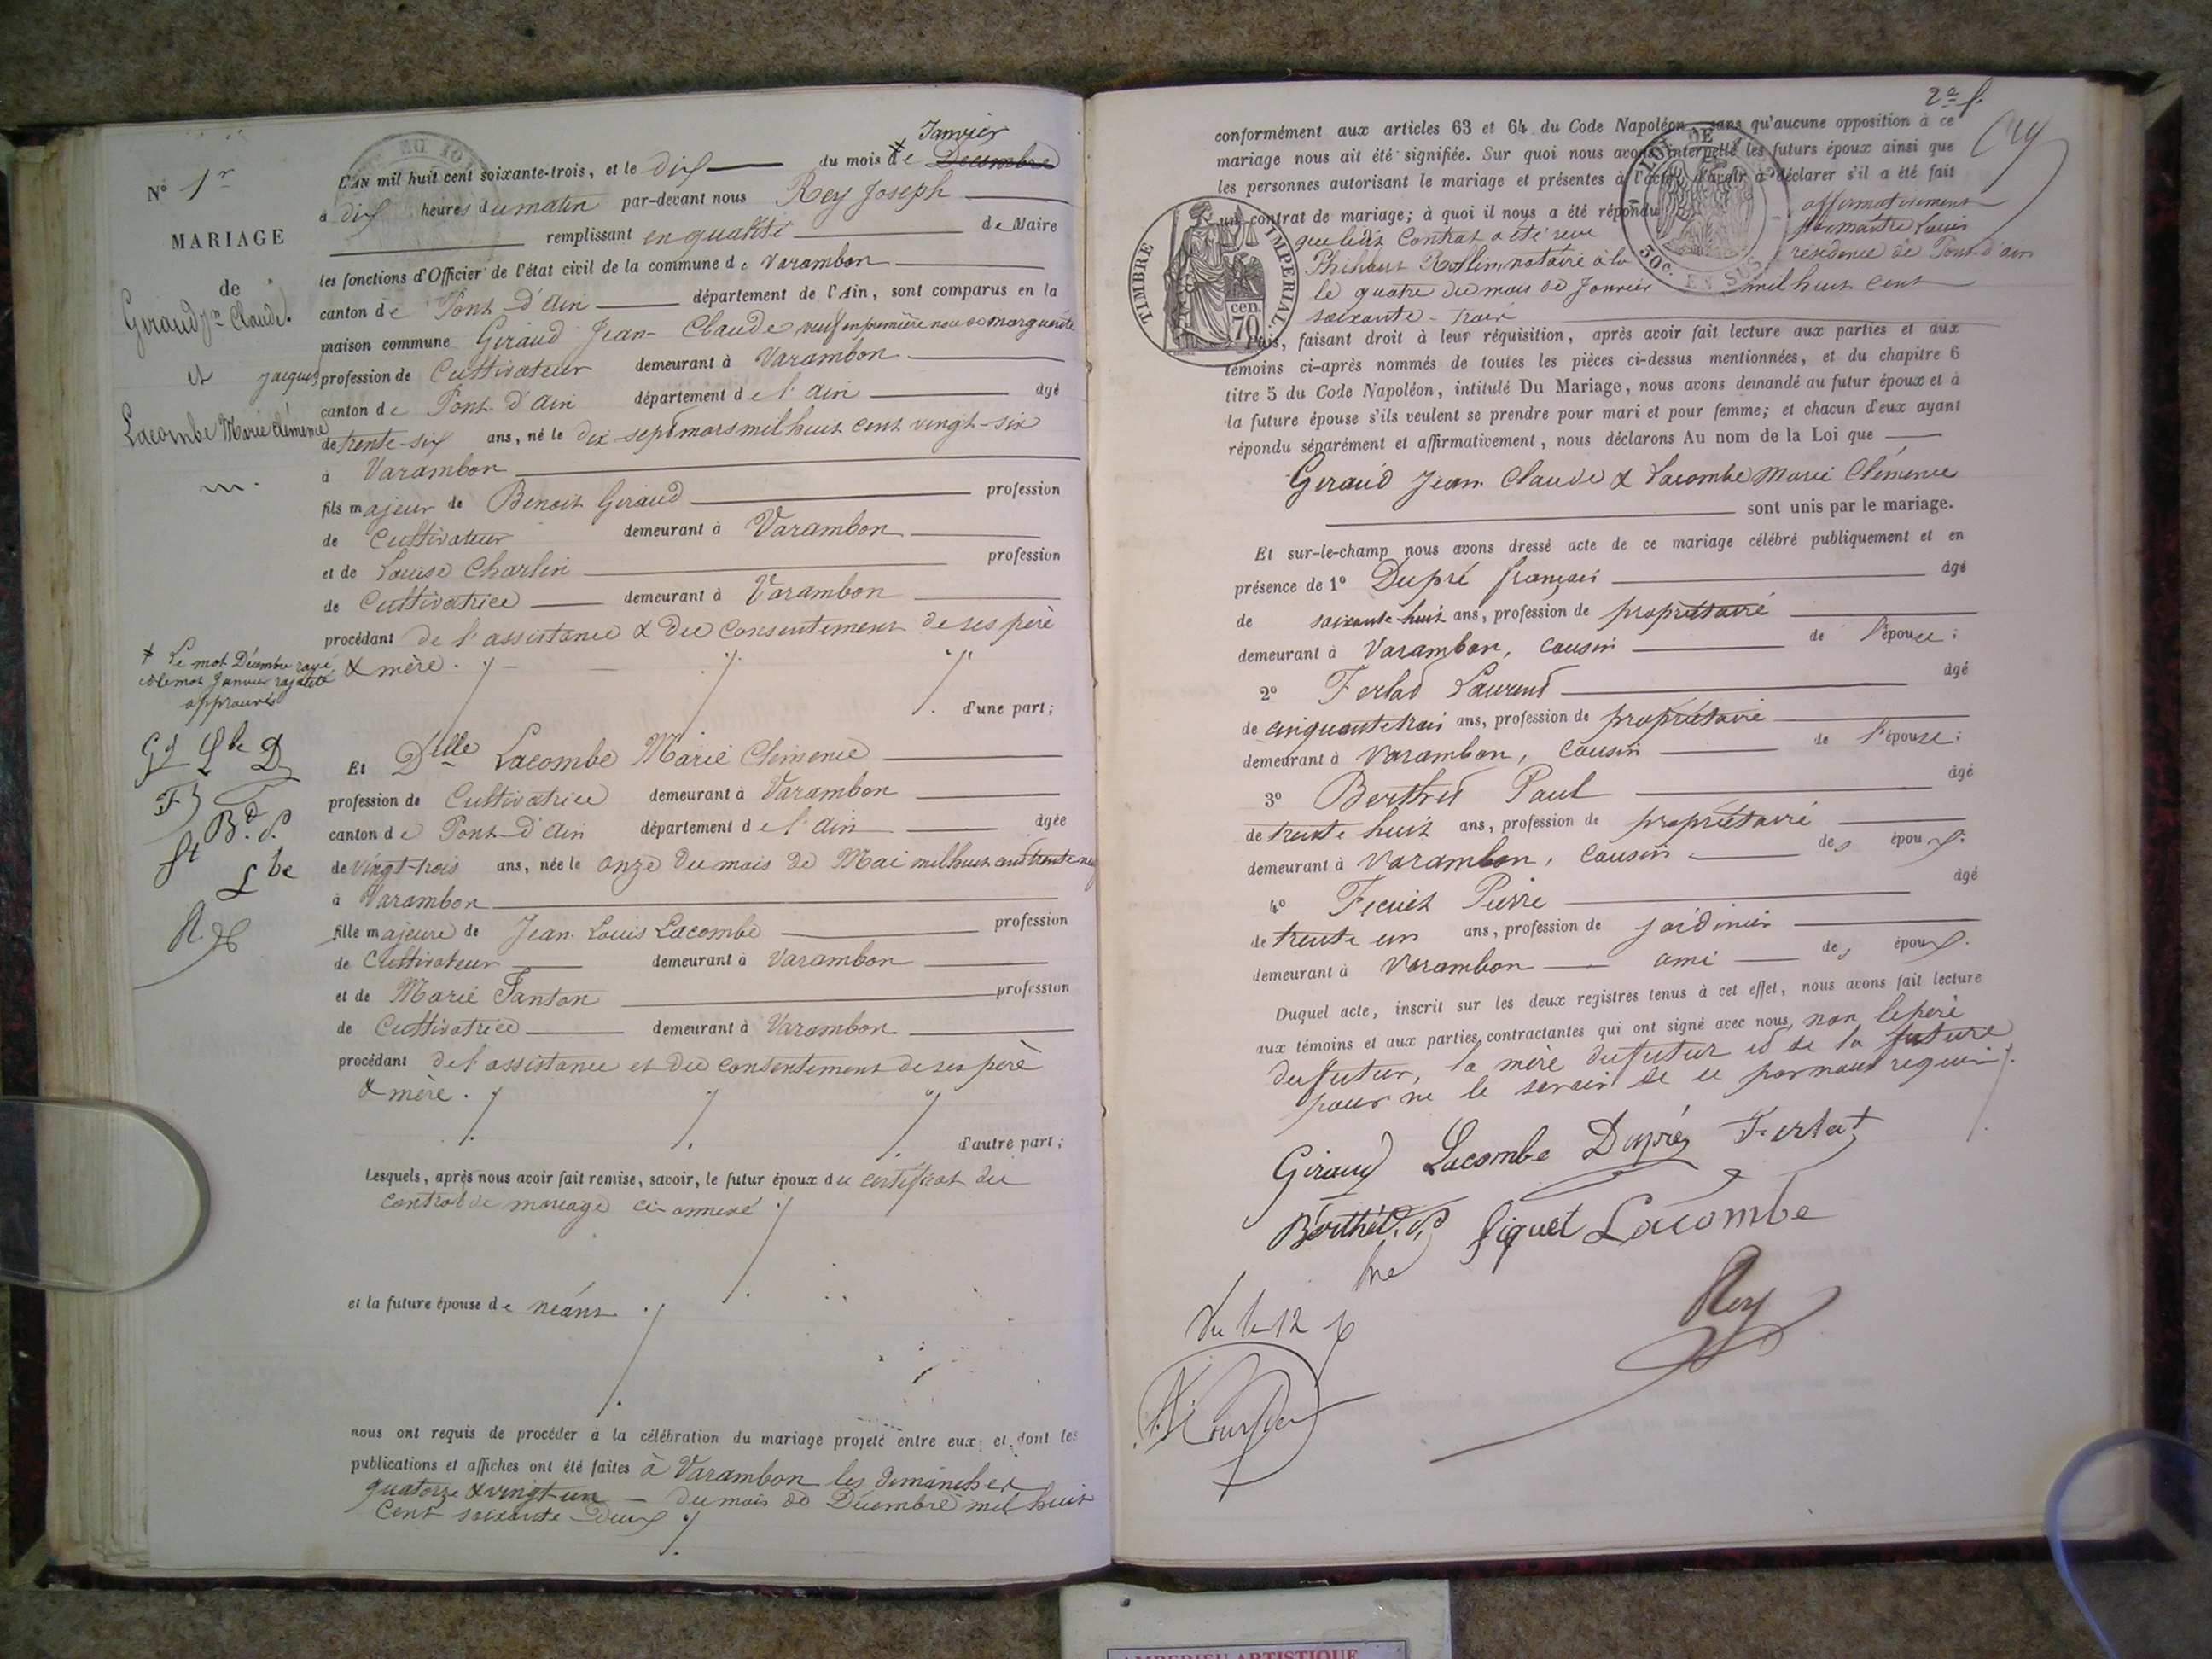 N° 1r
MARIAGE
de
Giraud Jn Claude.
et
Lacombe Marie Clémence
L'AN mil huit cent soixante-trois, et le dix du mois de Decembre Janvier
à dix heures du matin par-devant nous Rey Joseph
remplissant en qualité de Maire
les fonctions d'Officier de l'état civil de la commune de Varambon
canton de Pont-d'Ain département de l'Ain, sont comparus en la
maison commune Giraud Jean-Claude veuf en première noce de Marguerite
Jacques profession de Cultivateur demeurant à Varambon
canton de Pont d'Ain département de l'Ain âgé
de trente-six ans, né le dix-sept mars mil huit cent vingt-six
à Varambon
fils majeur de Benoit Giraud profession
de Cultivateur demeurant à Varambon
et de Louise Charlin profession
de Cultivatrice demeurant à Varambon
procédant de l'assistance & du consentement de ses père
& mère.
d'une part;
* Le mot Décembre rayé,
et le mot Janvier rajouté
approuvés
Gd Lbe D
F
Bd. P.
ft
Lbe
R
Et Dlle Lacombe Marie Clémence
profession de Cultivatrice demeurant à Varambon
canton de Pont-d'Ain département de l'Ain âgée
de vingt-trois ans, née le onze du mois de Mai mil huit cent trente neuf
à Varambon
fille majeure de Jean-Louis Lacombe profession
de Cultivateur demeurant à Varambon
et de Marie Fanton profession
de Cultivatrice demeurant à Varambon
procédant de l'assistance et du consentement de ses père
& mère.
d'autre part;
Lesquels, après nous avoir fait remise, savoir, le futur époux du certificat du
contrat de mariage ci-annexé
et la future épouse de néant
nous ont requis de procéder à la célébration du mariage projeté entre eux; et dont les
publications et affiches ont été faites à Varambon les dimanches
quatorze & vingt-un du mois de Décembre mil huit
cent soixante-deux
2e f.
conformément aux articles 63 et 64 du Code Napoléon, sans qu'aucune opposition à ce
mariage nous ait été signifiée. Sur quoi nous avons interpellé les futurs époux ainsi que
les personnes autorisant le mariage et présentes à l'acte, d'avoir à déclarer s'il a été fait
un contrat de mariage; à quoi il nous a été répondu affirmativement
que ledit Contrat a été reçu par maître Louis
Philibert notaire à la résidence de Pont-d'Ain
le quatre du mois de Janvier mil huit cent
soixante-trois
TIMBRE IMPERIAL.
70 cen.
LOI DE
50c. EN SUS
Puis, faisant droit à leur réquisition, après avoir fait lecture aux parties et aux
témoins ci-après nommés de toutes les pièces ci-dessus mentionnées, et du chapitre 6
titre 5 du Code Napoléon, intitulé Du Mariage, nous avons demandé au futur époux et à
la future épouse s'ils veulent se prendre pour mari et pour femme; et chacun d'eux ayant
répondu séparément et affirmativement, nous déclarons Au nom de la Loi que
Giraud Jean Claude & Lacombe Marie Clémence
sont unis par le mariage.
Et sur-le-champ nous avons dressé acte de ce mariage célébré publiquement et en
présence de 1° Dupré françois âgé
de soixante-huit ans, profession de propriétaire
demeurant à Varambon, cousin de l'épouse;
2° Ferlat Laurent âgé
de cinquante trois ans, profession de propriétaire
demeurant à Varambon, cousin de l'épouse;
3° Berthet Paul âgé
de trente huit ans, profession de propriétaire
demeurant à Varambon, cousin des époux;
4° Ficuet Pierre âgé
de trente un ans, profession de jardinier
demeurant à Varambon ami des époux.
Duquel acte, inscrit sur les deux registres tenus à cet effet, nous avons fait lecture
aux témoins et aux parties contractantes qui ont signé avec nous, non le père
du futur, la mère du futur et de la future
pour ne le savoir de ce par nous requis.
Giraud Lacombe Dupré Ferlat
Berthet. P. figuet Lacombe
Rey
Vu le 12
AMBERIEU ARTISTIQUE